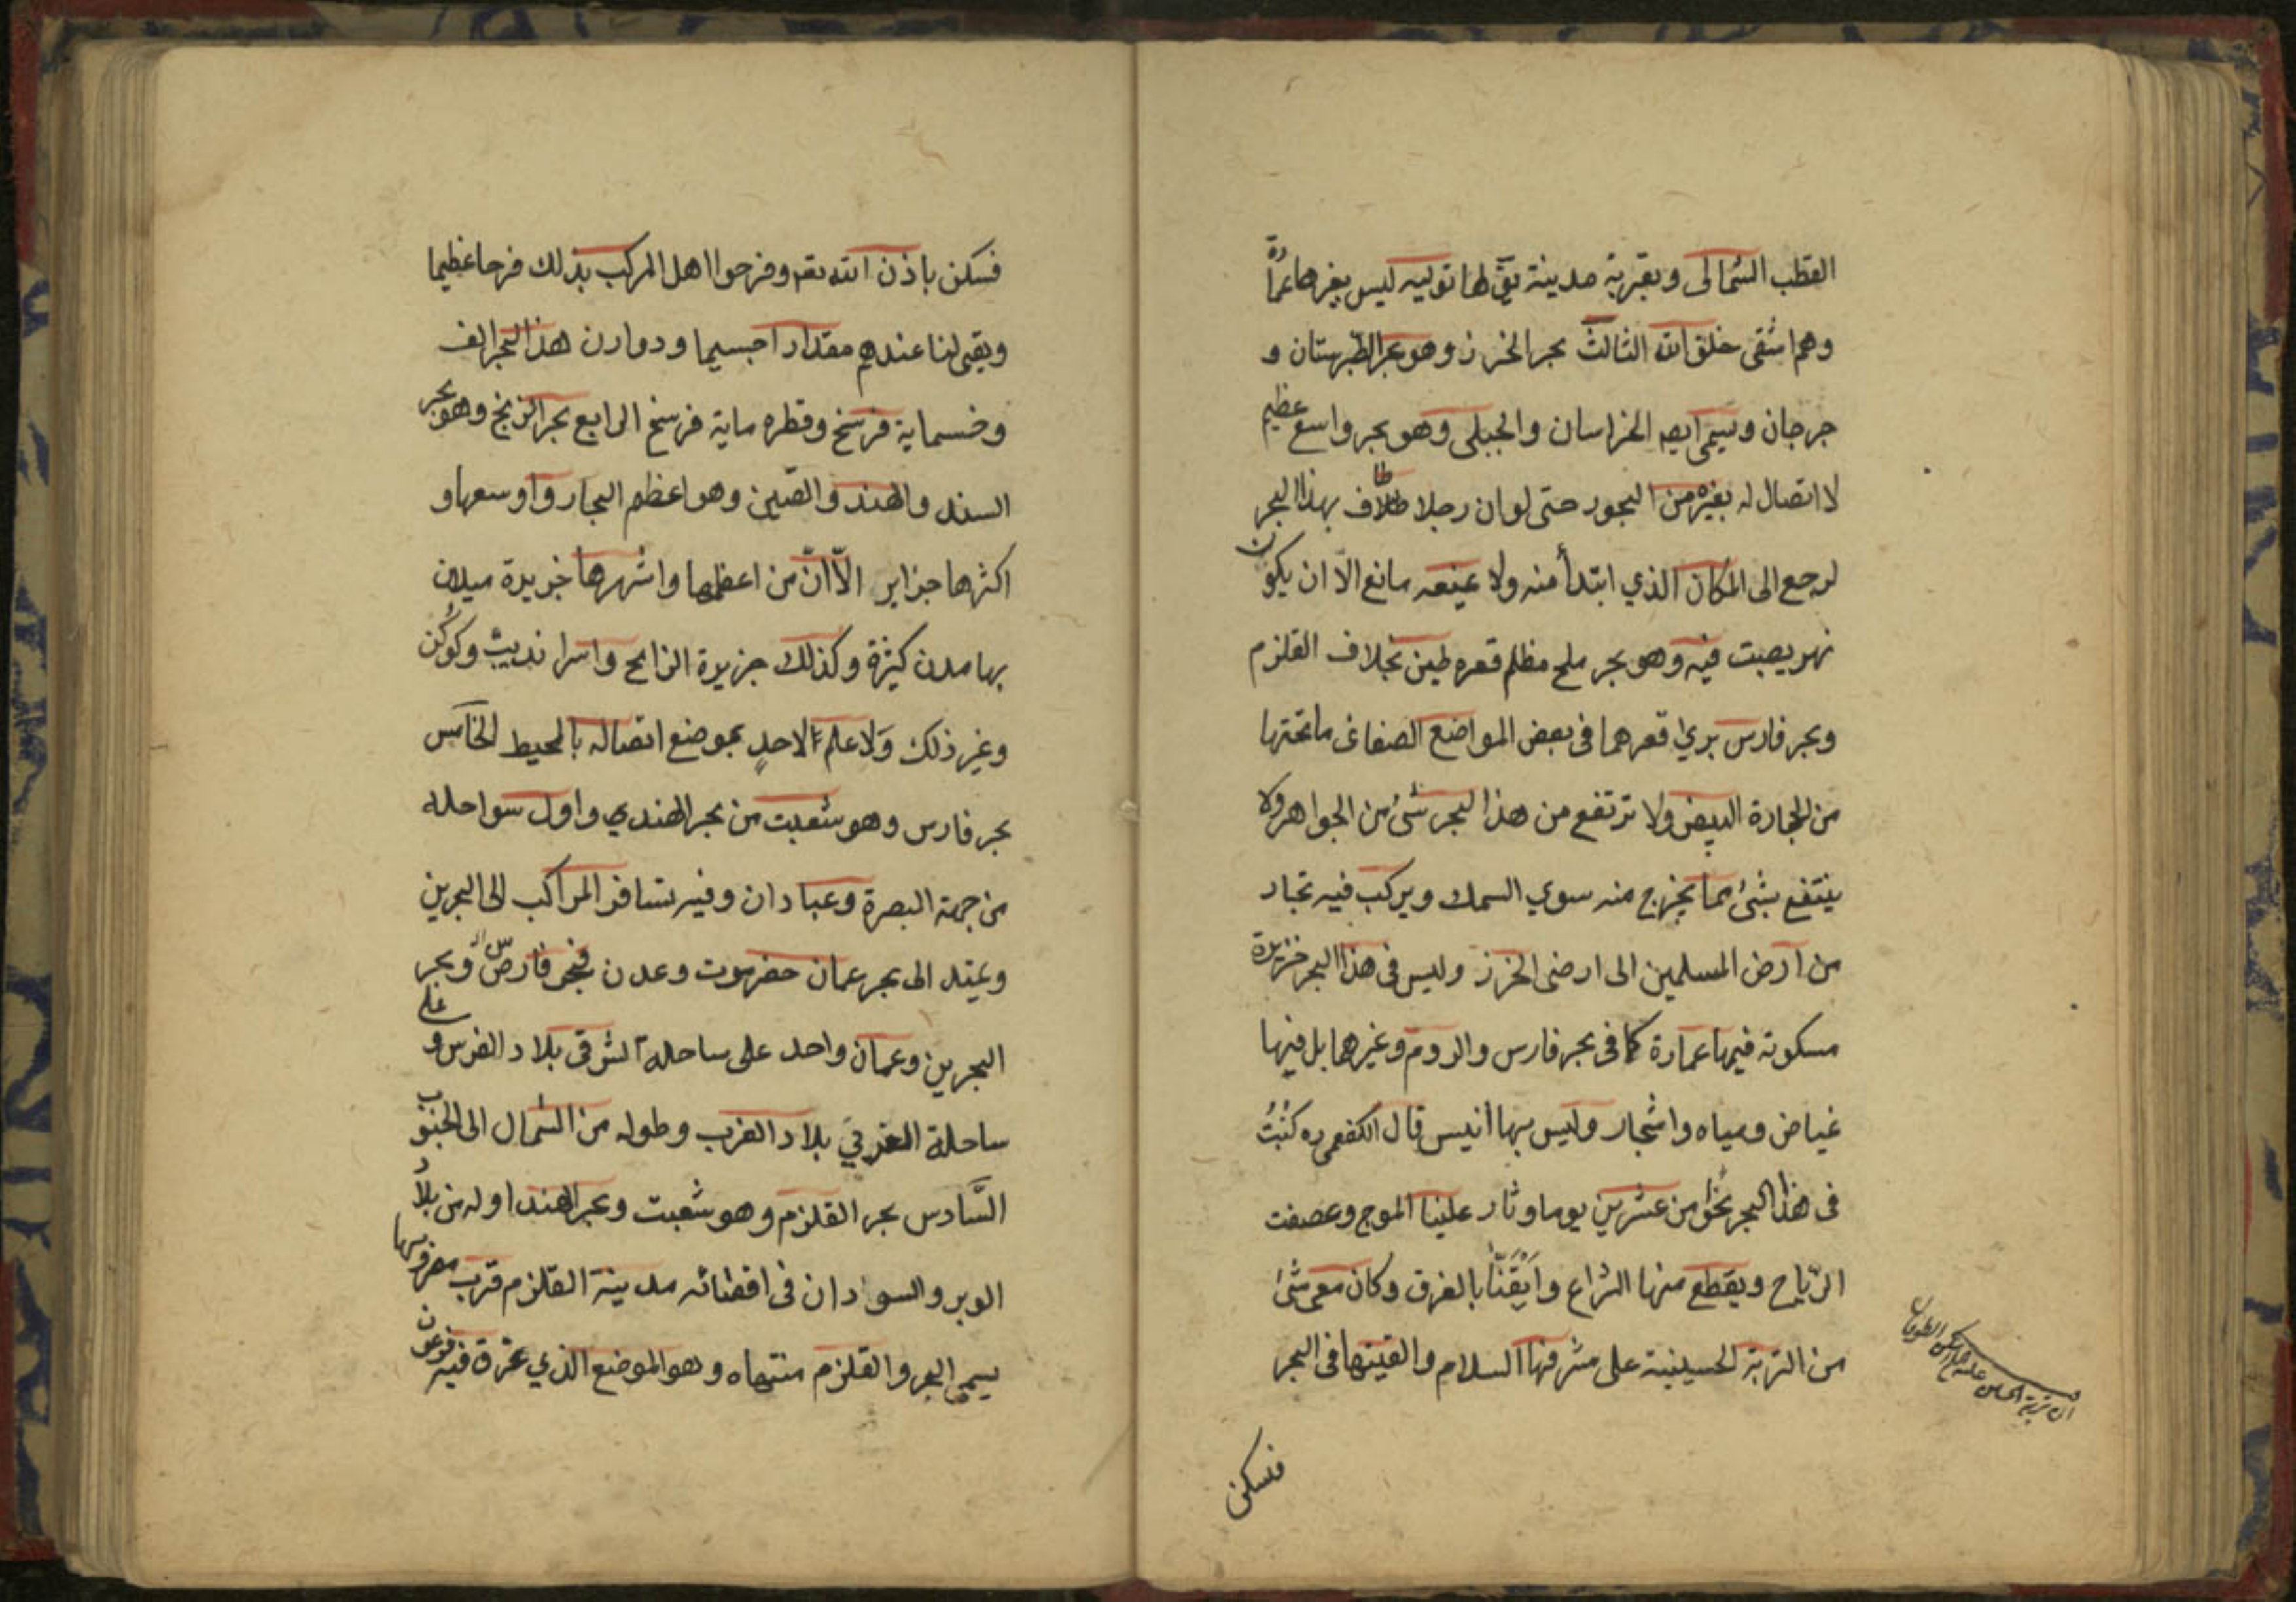 القطب الشمالى وبقربة مدينة يق لها توليه ليس بغرها عمارة
وهم اشقى خلق الله الثالث بحر الخرز وهو بحر الطبرستان و
جرجان ويسمى ايضه الخراسان والجبلى وهو بحر واسع عظيم
لا اتصال له بغيره من البحور حتى لو ان رجلا طاف بهذا البحر
لرجع الى المكان الذي ابتدأ منه ولا يمنعه مانع الا ان يكون
نهر يصبت فيه وهو بحر ملح مظلم قعره طين بخلاف القلزم
وبحر فارس يرى قعرهما فى بعض المواضع الصفاء ما تحتها
من الحجارة البيض ولا ترتفع من هذا البحر شئ من الجواهر ولا
ينتفع بشئ مما يخرج منه سوي السمك ويركب فيه تجار
من ارض المسلمين الى ارضى الخرز وليس فى هذا البحر جزيرة
مسكونه فيها عمارة كما فى بحر فارس والروم وغيرهما بل فيها
غياض ومياه واشجار وليس بها انيس قال الكفعمى ره كنت
فى هذا البحر نحوا من عشرين يوما وثار علينا الموج وعصفت
الرياح ويقطع منها الشراع وايقنا بالغرق وكان معى شئ
من التربة الحسينية على مشرفها السلام والقيتها فى البحر
فسكن
فسكن باذن الله تعه وفرحوا اهل المركب بذلك فرحا عظيما
وبقى لنا عندهم مقدارا جسيما ودوارن هذا البحر الف
وخسماية فرسخ وقطره ماية فرسخ الرابع بحر الزنج وهو بحر
السند والهند والصين وهو اعظم البحار واوسعها و
اكثرها جزاير الا ان من اعظمها واشهرها جزيرة سيلان
بها مدن كثيرة وكذلك جزيرة الزانج واسرانديب وكوكن
وغير ذلك ولا علم لاحد بموضع اتصاله بالمحيط الخامس
بحر فارس وهو شعبت من بحر الهندي واول سواحله
من جهة البصرة وعبادان وفيه تسافر المراكب الى البحرين
ويمتد الى بحر عمان حضرموت وعدن فبحر فارس وبحر
البحرين وعمان واحد على ساحله الشرقى بلاد الفرس و على
ساحله الغربي بلاد العرب وطوله من الشمال الى الجنوب
السادس بحر القلزم وهو شعبت وبحر الهند اوله من بلاد
البربر والسودان فى اقصائه مدينة القلزم قرب مصر وبها
يسمى البحر والقلزم منتهاه وهو الموضع الذي غرق فيه فرعون